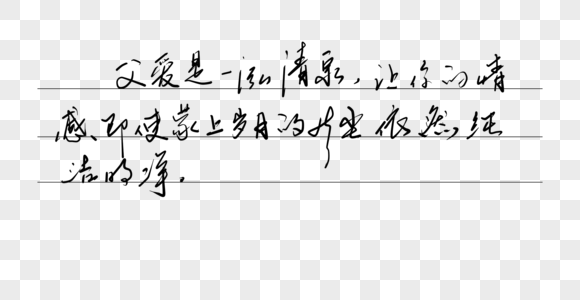 父爱是一泓清泉,让你的情
感、即使蒙上岁月的尘依然纯
洁明净。